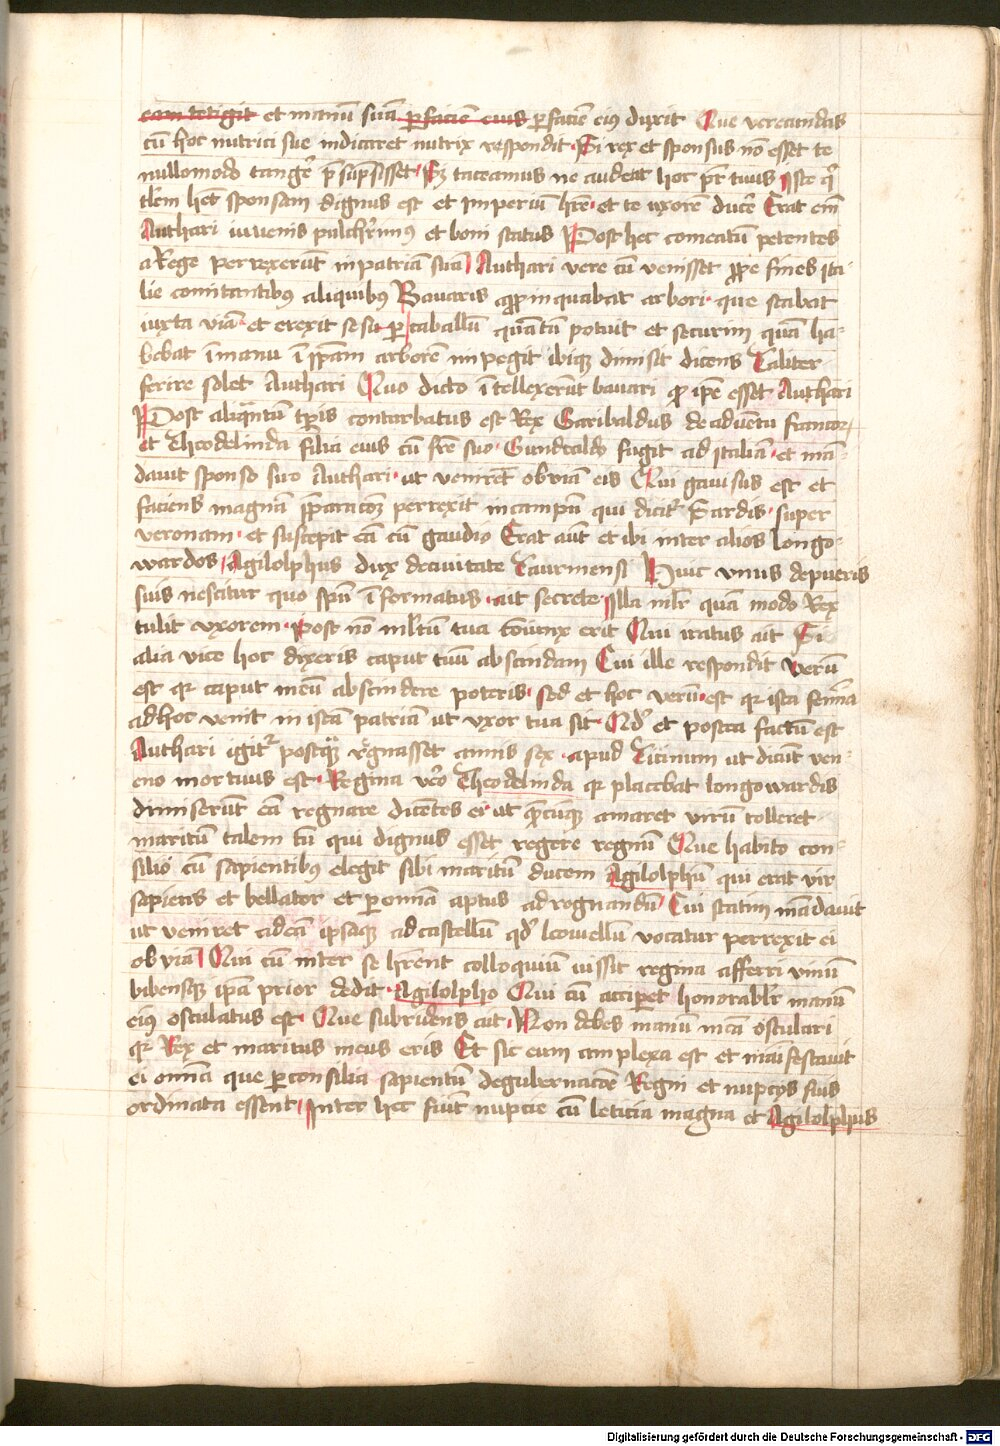 eam tetigit et manū suā p faciē eius p faciē eiꝰ duxit Que verecundās
cū hoc nutrici sue indicaret nutrix respondit Si rex et sponsus nō esset te
nullomodo tangeř p̄sūpsisset Sꝫ taceamus ne audeat hoc pr̄ tuus Iste qͥ
tlēm hēt sponsam dignus est et imperiū hr̄e et te uxorē duceř Erat em̄
Authari iuvenis pulcheřimꝰ et boni status Post hec comeatū petentes
a Rege perrexerūt in patriā suā Authari vero cū venisset ꝓpe fines ita
lie comitantibꝰ aliquibꝰ Bavaris appropinquabat arbori que stabat
iuxta viā et erexit se sup caballū quātū potuit et securim quā ha-
bebat ī manu ī ip̄am arborē impegit ibiqꝫ dimisit dicens Taliter
ferire solet Authari Quo dicto ītellexerūt bavari ꝙ ip̄e esset Authari
Post aliquātū tp̄is conturbatus est Rex Garibaldus de advētu francoꝝ
et Theodelinda filia eius cū fr̄e suo Gundoaldo fugit ad italiā et mā-
davit sponso suo Authari ut veniret obviā eis Qui gavisus est et
faciens magnā p̄paracōꝫ perrexit in campū qui dicitᷣ Sardis super
veronam et suscepit eā cū gaudio Erat aūt et ibi inter alios longo-
wardos Agilolphus dux de civitate Taurinensi Huic vnus de pueris
suis nescitur quo spū īformatus ait secrete Illa mlr̄ quā modo Rex
tulit vxorem post nō ml̄tū tua cōiunx erit Qui iratus ait Si
alia vice hoc dixeris caput tuū abscindam Cui ille respondit verū
est qꝛ caput meū abscindere poteris sed et hoc verū est qꝛ ista femīa
ad hoc venit in istā patriā ut vxor tua sit Qđ et postea factū est
Authari igitᷣ postqꝫ regnasset annis sex apud Ticinum ut dicūt ven-
eno mortuus est Regina vͦo Theodelinda qꝛ placebat longowardis
dimiserūt eā regnare dicētes ei ut quēcūqꝫ amaret virū tolleret
maritū talem tn̄ qui dignus esset regere regnū Que habito con-
silio cū sapientibꝰ elegit sibi maritū ducem Agilolphū qui erat vir
sapiens et bellator et p omīa aptus ad regnandū Cui statim mādavit
ut veniret ad eā ipsaqꝫ ad castellū qđ leowellū vocatur perrexit ei
obviā Qui cū inter se hr̄ent colloquiū iussit regina afferri vinū
bibensqꝫ ip̄a prior dedit Agilolpho Qui cū acciperet honorabilr̄ manū
eiꝰ osculatus est Que subridens ait Non debes manū meā osculari
qꝛ Rex et maritus meus eris Et sic eum amplexa est et māifestavit
ei omīa que p consilia sapientū de gubernacōe Regni et nupcijs suis
ordinata essent Inter hec fiūt nupcie cū leticia magna et Agilolphus
Digitalisierung gefördert durch die Deutsche Forschungsgemeinschaft - DFG